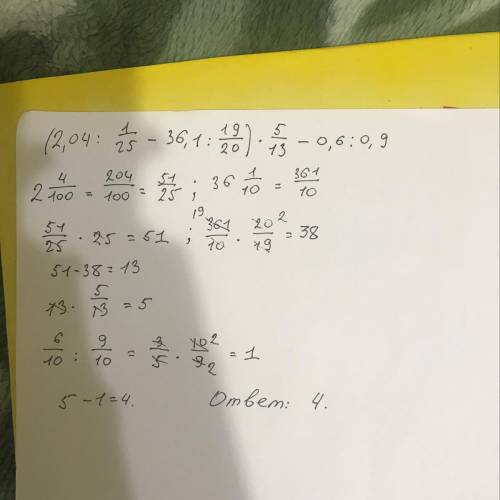 (2,04 : 1/25 − 36,1 : 19/20) · 5/13 − 0,6 : 0,9
2 4/100 = 204/100 = 51/25 ; 36 1/10 = 361/10
51/25 · 25 = 51 ; 19 361/10 · 20/19 2 = 38
51 - 38 = 13
13 · 5/13 = 5
6/10 : 9/10 = 3/5 · 10/9 2 2 = 1
5 - 1 = 4. Ответ: 4.